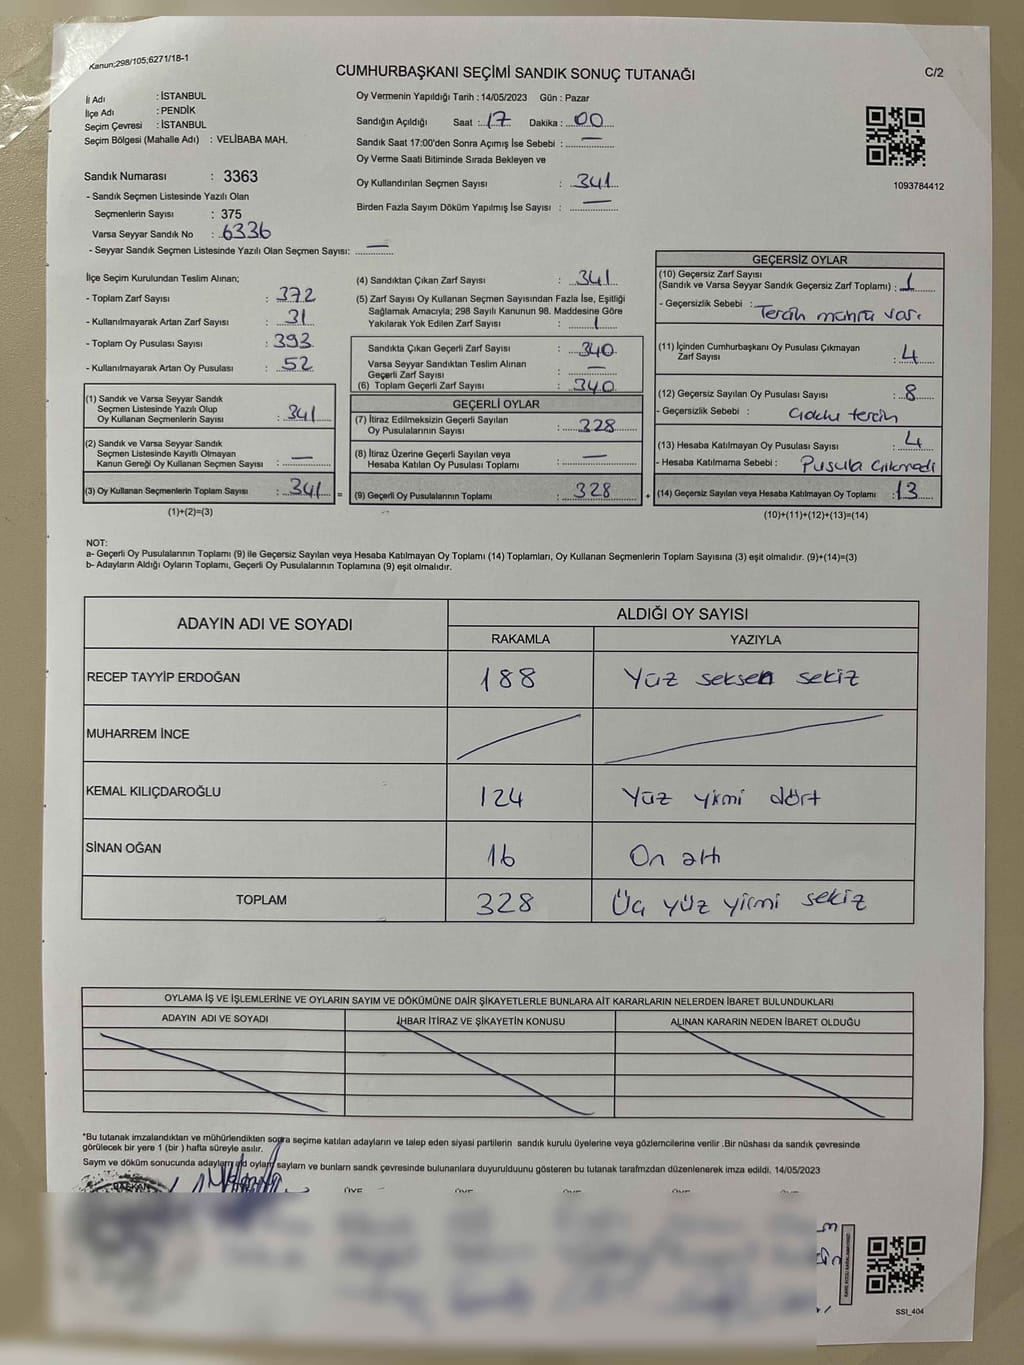 Kanun;298/105;6271/18-1
CUMHURBAŞKANI SEÇİMİ SANDIK SONUÇ TUTANAĞI
C/2
İl Adı : İSTANBUL
İlçe Adı : PENDİK
Seçim Çevresi : İSTANBUL
Seçim Bölgesi (Mahalle Adı) : VELİBABA MAH.
Sandık Numarası : 3363
- Sandık Seçmen Listesinde Yazılı Olan
Seçmenlerin Sayısı : 375
Varsa Seyyar Sandık No : 6336
- Seyyar Sandık Seçmen Listesinde Yazılı Olan Seçmen Sayısı: —
Oy Vermenin Yapıldığı Tarih : 14/05/2023 Gün : Pazar
Sandığın Açıldığı Saat : 17 Dakika : 00
Sandık Saat 17:00'den Sonra Açımış İse Sebebi : —
Oy Verme Saati Bitiminde Sırada Bekleyen ve
Oy Kullandırılan Seçmen Sayısı : 341
Birden Fazla Sayım Döküm Yapılmış İse Sayısı : —
1093784412
İlçe Seçim Kurulundan Teslim Alınan;
- Toplam Zarf Sayısı : 372
- Kullanılmayarak Artan Zarf Sayısı : 31
- Toplam Oy Pusulası Sayısı : 393
- Kullanılmayarak Artan Oy Pusulası : 52
(1) Sandık ve Varsa Seyyar Sandık
Seçmen Listesinde Yazılı Olup
Oy Kullanan Seçmenlerin Sayısı : 341
(2) Sandık ve Varsa Seyyar Sandık
Seçmen Listesinde Kayıtlı Olmayan
Kanun Gereği Oy Kullanan Seçmen Sayısı : —
(3) Oy Kullanan Seçmenlerin Toplam Sayısı : 341 =
(1)+(2)=(3)
(4) Sandıktan Çıkan Zarf Sayısı : 341
(5) Zarf Sayısı Oy Kullanan Seçmen Sayısından Fazla İse, Eşitliği
Sağlamak Amacıyla; 298 Sayılı Kanunun 98. Maddesine Göre
Yakılarak Yok Edilen Zarf Sayısı : 1
Sandıkta Çıkan Geçerli Zarf Sayısı : 340
Varsa Seyyar Sandıktan Teslim Alınan
Geçerli Zarf Sayısı : —
(6) Toplam Geçerli Zarf Sayısı : 340
GEÇERLİ OYLAR
(7) İtiraz Edilmeksizin Geçerli Sayılan
Oy Pusulalarının Sayısı : 328
(8) İtiraz Üzerine Geçerli Sayılan veya
Hesaba Katılan Oy Pusulası Toplamı : —
(9) Geçerli Oy Pusulalarının Toplamı : 328 +
GEÇERSİZ OYLAR
(10) Geçersiz Zarf Sayısı
(Sandık ve Varsa Seyyar Sandık Geçersiz Zarf Toplamı) : 1
- Geçersizlik Sebebi : Tercih mührü var.
(11) İçinden Cumhurbaşkanı Oy Pusulası Çıkmayan
Zarf Sayısı : 4
(12) Geçersiz Sayılan Oy Pusulası Sayısı : 8
- Geçersizlik Sebebi : tercih
(13) Hesaba Katılmayan Oy Pusulası Sayısı : 4
- Hesaba Katılmama Sebebi : Pusula Çıkmadı
(14) Geçersiz Sayılan veya Hesaba Katılmayan Oy Toplamı : 13
(10)+(11)+(12)+(13)=(14)
NOT:
a- Geçerli Oy Pusulalarının Toplamı (9) ile Geçersiz Sayılan veya Hesaba Katılmayan Oy Toplamı (14) Toplamları, Oy Kullanan Seçmenlerin Toplam Sayısına (3) eşit olmalıdır. (9)+(14)=(3)
b- Adayların Aldığı Oyların Toplamı, Geçerli Oy Pusulalarının Toplamına (9) eşit olmalıdır.
ADAYIN ADI VE SOYADI
ALDIĞI OY SAYISI
RAKAMLA YAZIYLA
RECEP TAYYİP ERDOĞAN 188 Yüz seksen sekiz
MUHARREM İNCE
KEMAL KILIÇDAROĞLU 124 Yüz yirmi dört
SİNAN OĞAN 16 On altı
TOPLAM 328 Üç yüz yirmi sekiz
OYLAMA İŞ VE İŞLEMLERİNE VE OYLARIN SAYIM VE DÖKÜMÜNE DAİR ŞİKAYETLERLE BUNLARA AİT KARARLARIN NELERDEN İBARET BULUNDUKLARI
ADAYIN ADI VE SOYADI İHBAR İTİRAZ VE ŞİKAYETİN KONUSU ALINAN KARARIN NEDEN İBARET OLDUĞU
*Bu tutanak imzalandıktan ve mühürlendikten sonra seçime katılan adayların ve talep eden siyasi partilerin sandık kurulu üyelerine veya gözlemcilerine verilir .Bir nüshası da sandık çevresinde
görülecek bir yere 1 (bir ) hafta süreyle asılır.
Sayım ve döküm sonucunda adayların oyların sayların ve bunların sandk çevresinde bulunanlara duyurulduunu gösteren bu tutanak tarafmzdan düzenlenerek imza edildi. 14/05/2023
BAŞKAN ÜYE ÜYE ÜYE ÜYE ÜYE
SSI_404